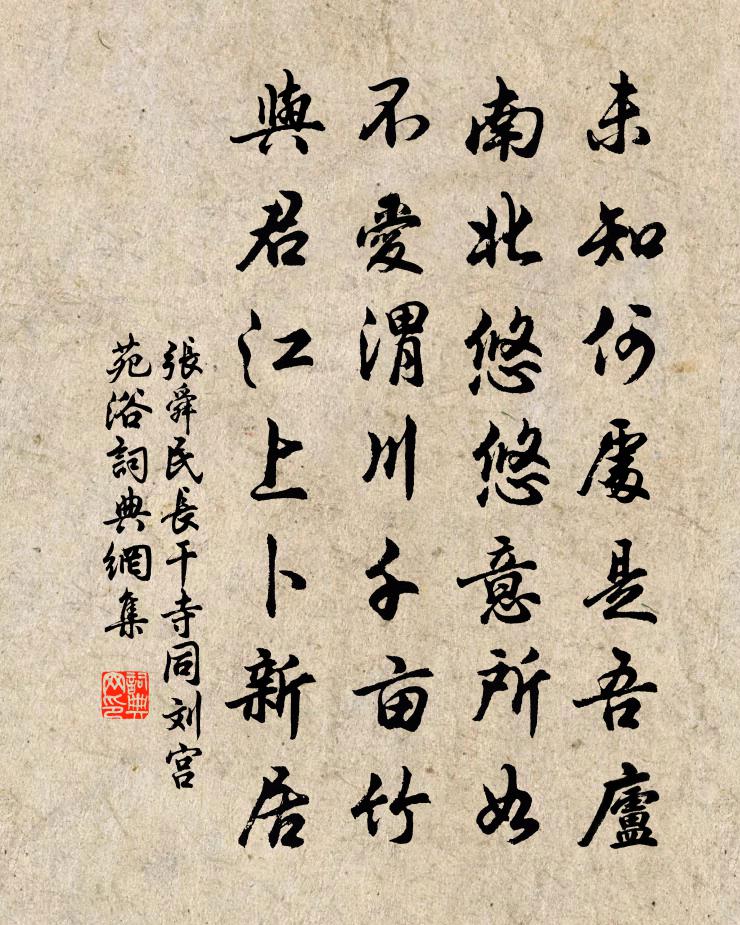 未知何處是吾廬
南北悠悠意所如
不愛渭川千亩竹
與君江上卜新居
張舜民長干寺同刘宫
苑浴詞典網集
詞典
网印